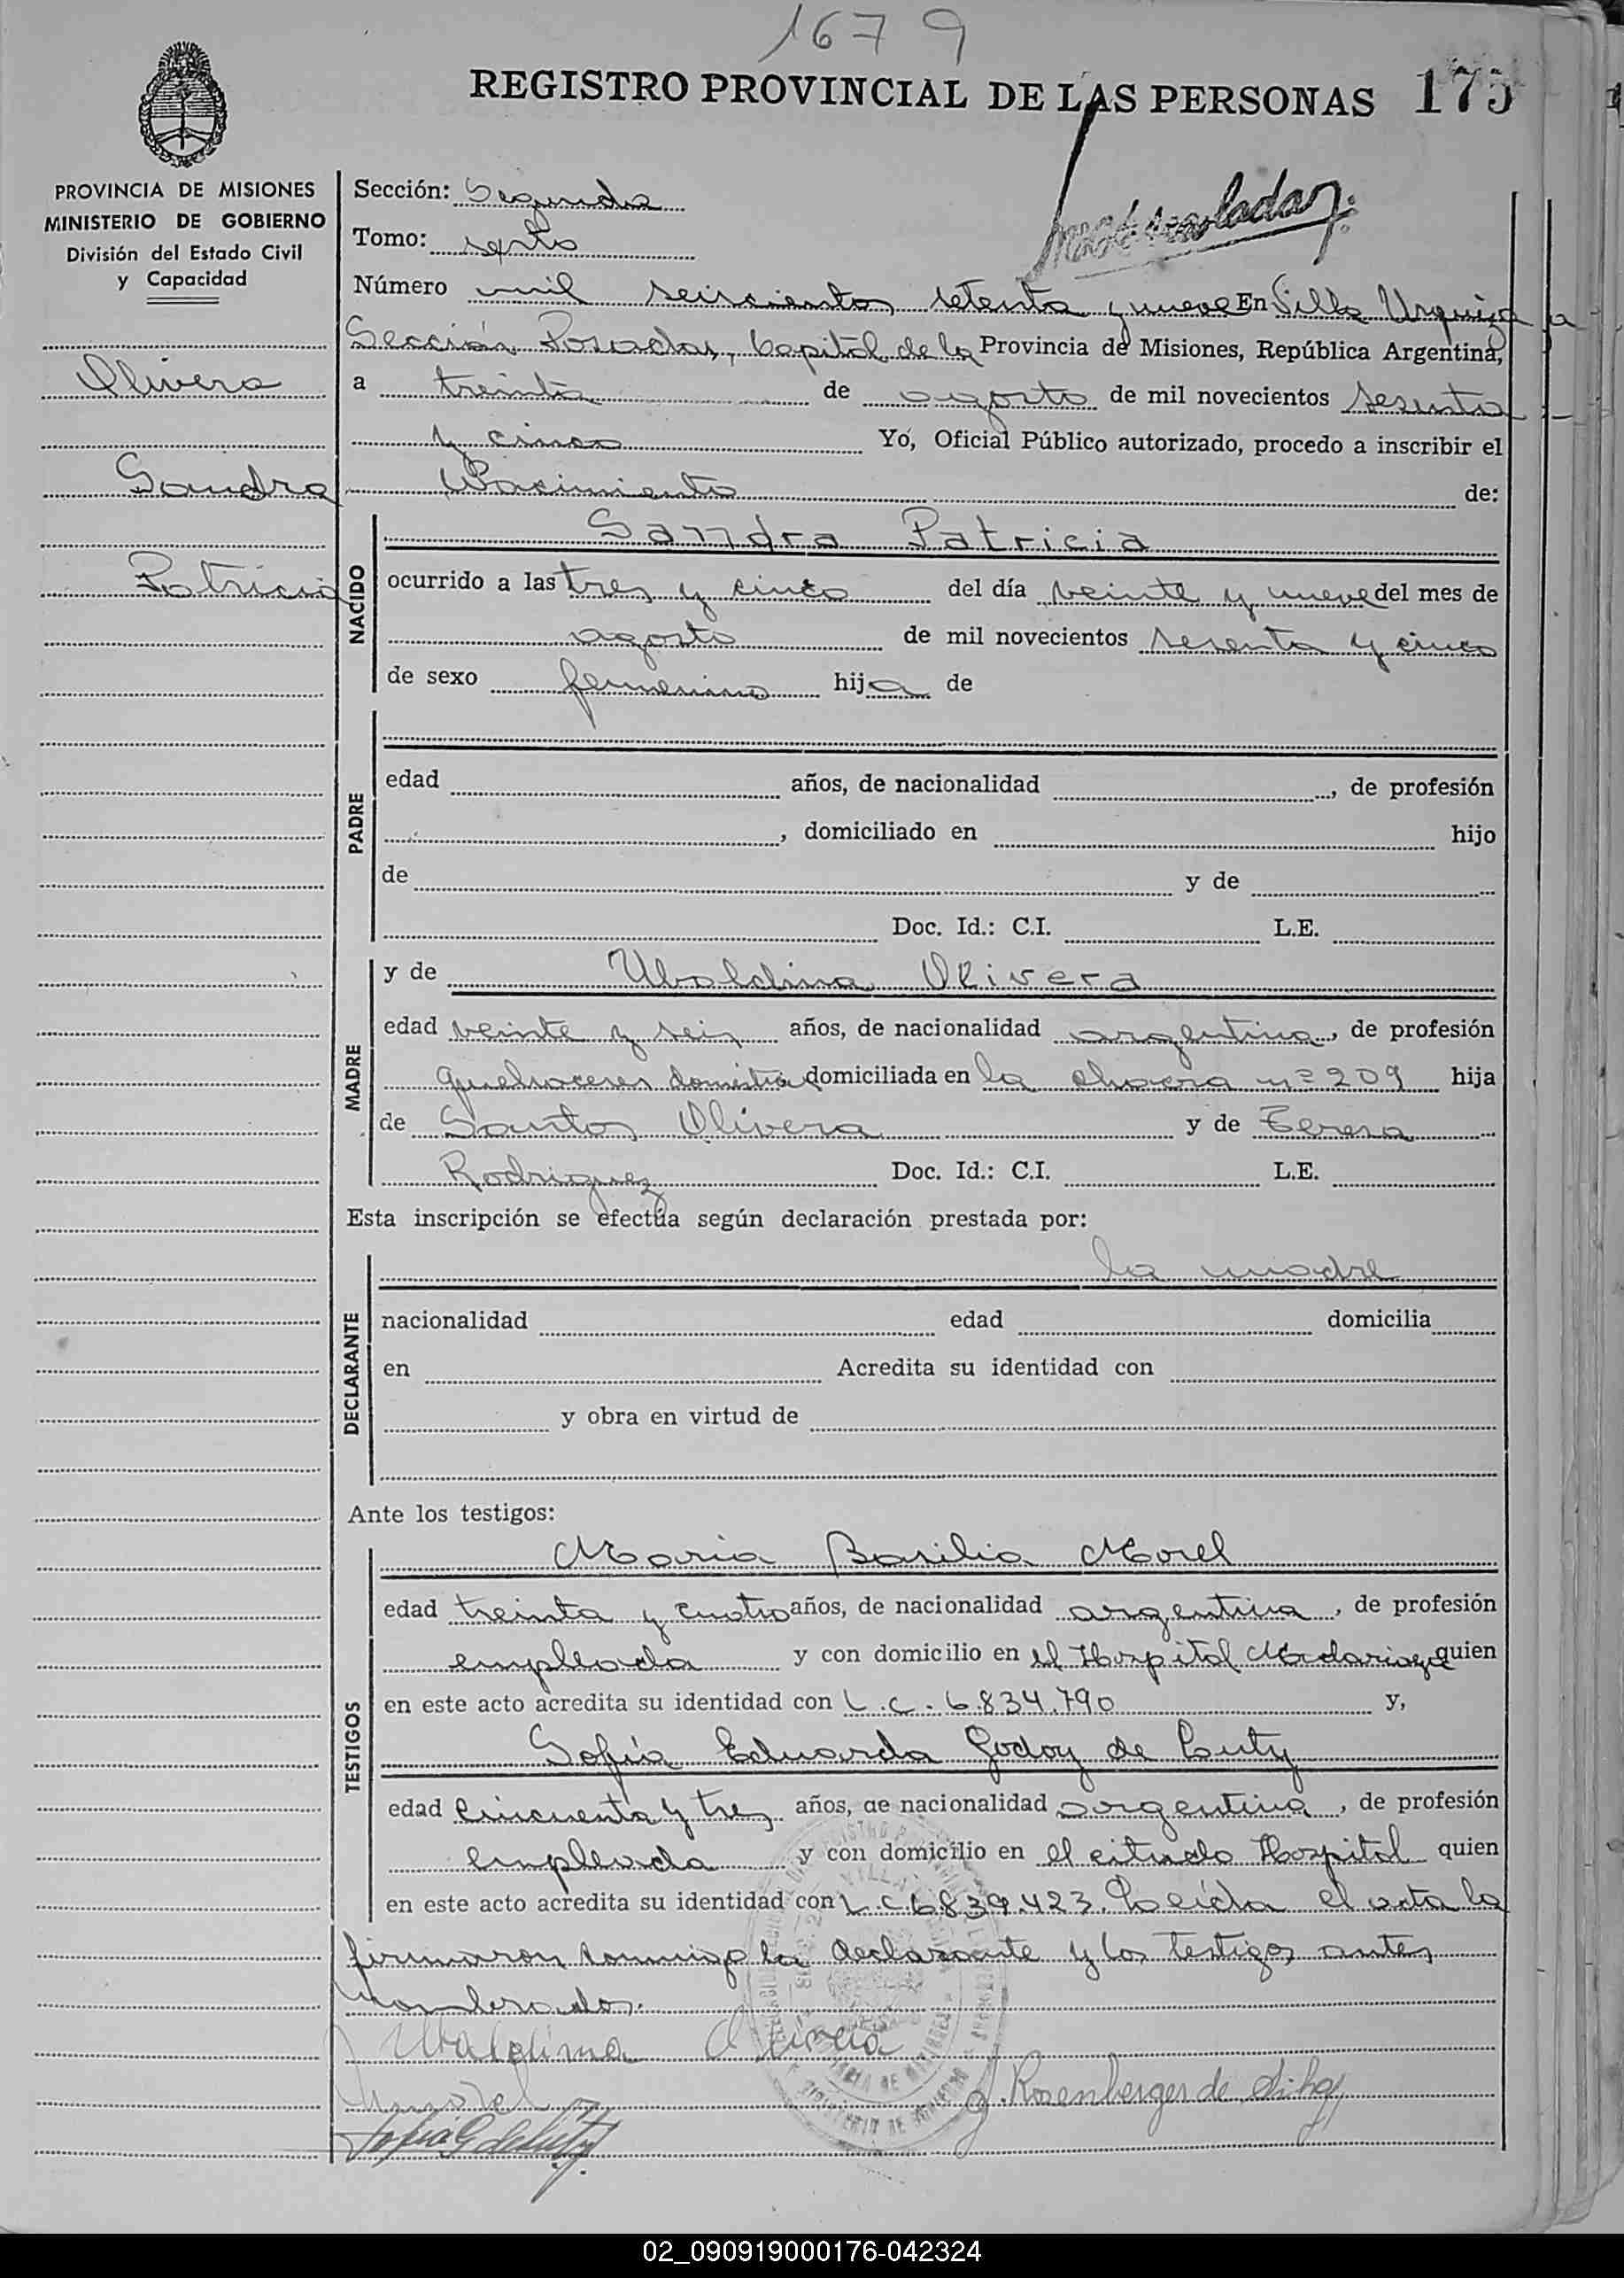 1679
REGISTRO PROVINCIAL DE LAS PERSONAS 175
PROVINCIA DE MISIONES
MINISTERIO DE GOBIERNO
División del Estado Civil
y Capacidad
Olivera
Sandra
Patricia
Sección: Segunda
Tomo: sexto
Número mil seiscientos setenta y nueve En Villa Urquiza
Sección Posadas, Capital de la Provincia de Misiones, República Argentina,
a treinta de agosto de mil novecientos sesenta
y cinco Yo, Oficial Público autorizado, procedo a inscribir el
Nacimiento de:
NACIDO
Sandra Patricia
ocurrido a las tres y cinco del día veinte y nueve del mes de
agosto de mil novecientos sesenta y cinco
de sexo femenino hija de
PADRE
edad años, de nacionalidad , de profesión
, domiciliado en hijo
de y de
Doc. Id.: C.I. L.E.
MADRE
y de Ubaldina Olivera
edad veinte y seis años, de nacionalidad argentina, de profesión
quehaceres domésticos domiciliada en la chacra nº 209 hija
de Santos Olivera y de Teresa
Rodriguez Doc. Id.: C.I. L.E.
Esta inscripción se efectúa según declaración prestada por:
DECLARANTE
la madre
nacionalidad edad domicilia
en Acredita su identidad con
y obra en virtud de
Ante los testigos:
TESTIGOS
Maria Basilia Morel
edad treinta y cuatro años, de nacionalidad argentina, de profesión
empleada y con domicilio en el Hospital Madariaga quien
en este acto acredita su identidad con L.C. 6.834.790 y,
Sofía Eduarda Godoy de Cuty
edad cincuenta y tres años, de nacionalidad argentina, de profesión
empleada y con domicilio en el citado Hospital quien
en este acto acredita su identidad con L.C 6.839.423. Leída el acta la
firmaron conmigo la declarante y los testigos antes
nombrados.
Ubaldina Olivera
02_090919000176-042324